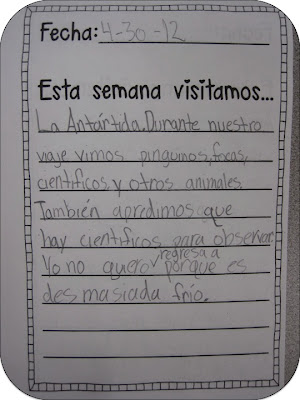 Fecha: 4-30-12
Esta semana visitamos...
La Antártida. Durante nuestro
viaje vimos pinguinos, focas,
científicos, y otros animales.
También apredimos que
hay científicos para observar.
Yo no quero regresa a porque es
des masiada frío.